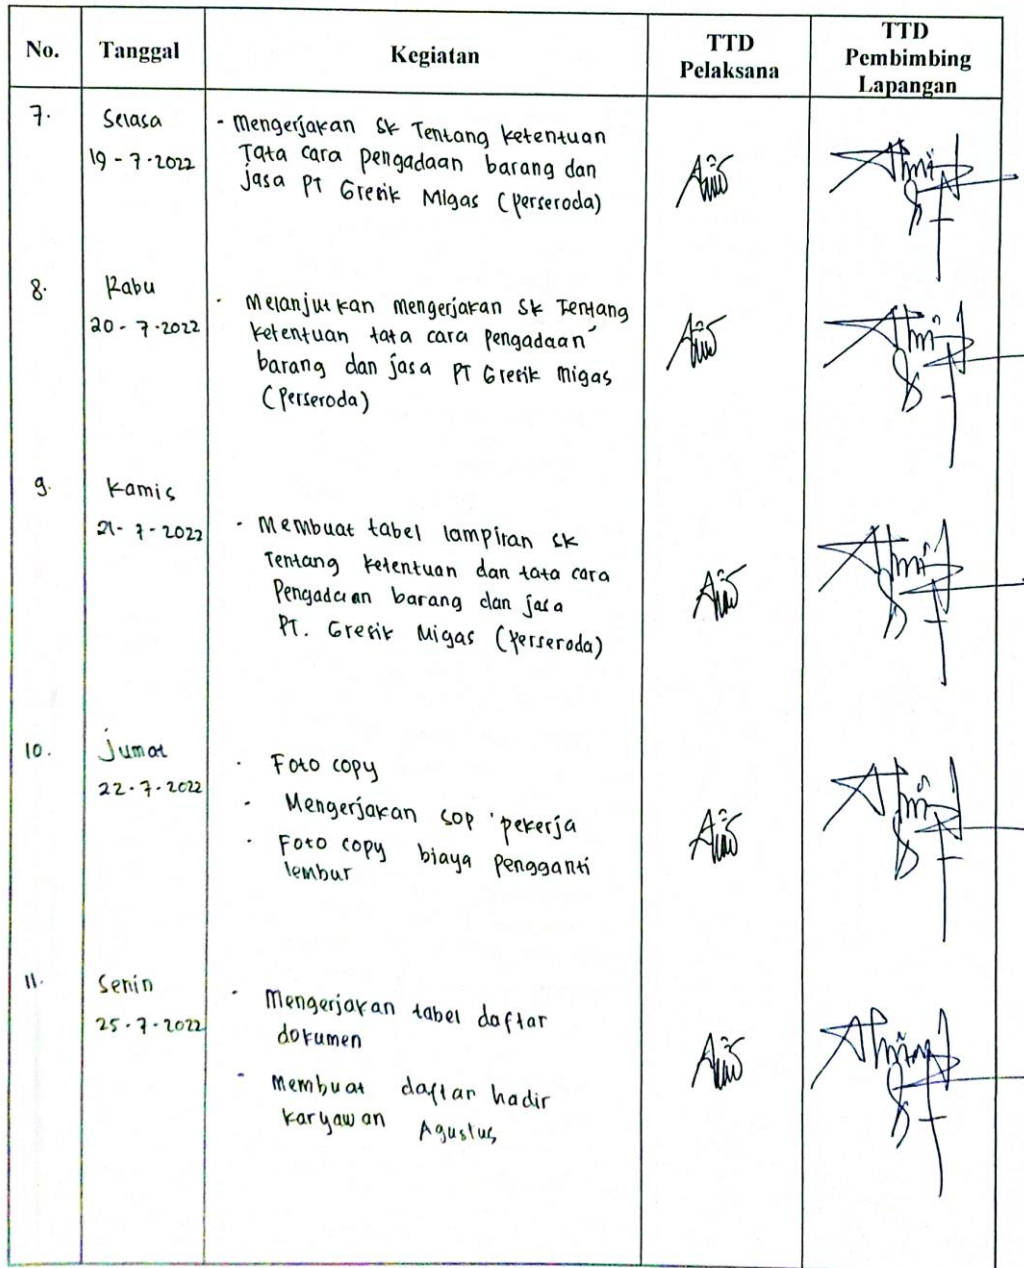 No. Tanggal Kegiatan TTD Pelaksana TTD Pembimbing Lapangan
7. Selasa
19 - 7 - 2022
- Mengerjakan SK Tentang ketentuan
Tata cara pengadaan barang dan
jasa PT Gresik Migas (Perseroda)
8. Rabu
20 - 7 - 2022
- Melanjutkan mengerjakan SK Tentang
ketentuan tata cara pengadaan
barang dan jasa PT Gresik Migas
(Perseroda)
9. Kamis
21 - 7 - 2022
- Membuat tabel lampiran SK
Tentang ketentuan dan tata cara
Pengadaan barang dan jasa
PT. Gresik Migas (Perseroda)
10. Jumat
22 - 7 - 2022
- Foto copy
- Mengerjakan SOP pekerja
- Foto copy biaya pengganti
lembur
11. Senin
25 - 7 - 2022
- Mengerjakan tabel daftar
dokumen
- Membuat daftar hadir
karyawan Agustus